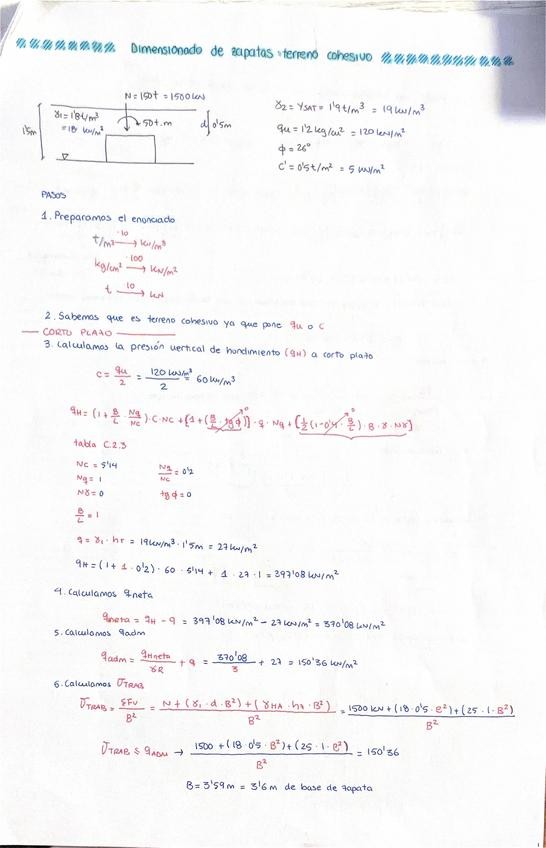 Dimensionado de zapatas = terreno cohesivo
N = 150t = 1500 kN
γ1 = 1'8 t/m³
= 18 kN/m³
50 t.m
d 0'5m
1'5m
γ2 = γSAT = 1'9 t/m³ = 19 kN/m³
qu = 1'2 kg/cm² = 120 kN/m²
φ = 26°
C' = 0'5 t/m² = 5 kN/m²
PASOS
1. Preparamos el enunciado
t/m³ —·10→ kN/m³
kg/cm² —·100→ kN/m²
t —10→ kN
2. Sabemos que es terreno cohesivo ya que pone qu o c
— CORTO PLAZO —
3. Calculamos la presión vertical de hundimiento (qH) a corto plazo
C = qu/2 = 120 kN/m²/2 = 60 kN/m³
qH = (1 + B/L · Nq/Nc) · C · Nc + [1 + (B/L · tg φ)] · q · Nq + [1/2 (1 - 0'4 · B/L) · B · γ · Nγ]
tabla C.2.3
Nc = 5'14
Nq/Nc = 0'2
Nq = 1
Nγ = 0
tg φ = 0
B/L = 1
q = γ1 · hT = 19 kN/m³ · 1'5m = 27 kN/m²
qH = (1 + 1 · 0'2) · 60 · 5'14 + 1 · 27 · 1 = 397'08 kN/m²
4. Calculamos qneta
qneta = qH - q = 397'08 kN/m² - 27 kN/m² = 370'08 kN/m²
5. Calculamos qadm
qadm = qHneta/γR + q = 370'08/3 + 27 = 150'36 kN/m²
6. Calculamos σTRAB
σTRAB = ΣFv/B² = N + (γ1 · d · B²) + (γHA · hz · B²)/B² = 1500 kN + (18 · 0'5 · B²) + (25 · 1 · B²)/B²
σTRAB ≤ qADM → 1500 + (18 · 0'5 · B²) + (25 · 1 · B²)/B² = 150'36
B = 3'59m = 3'6m de base de zapata